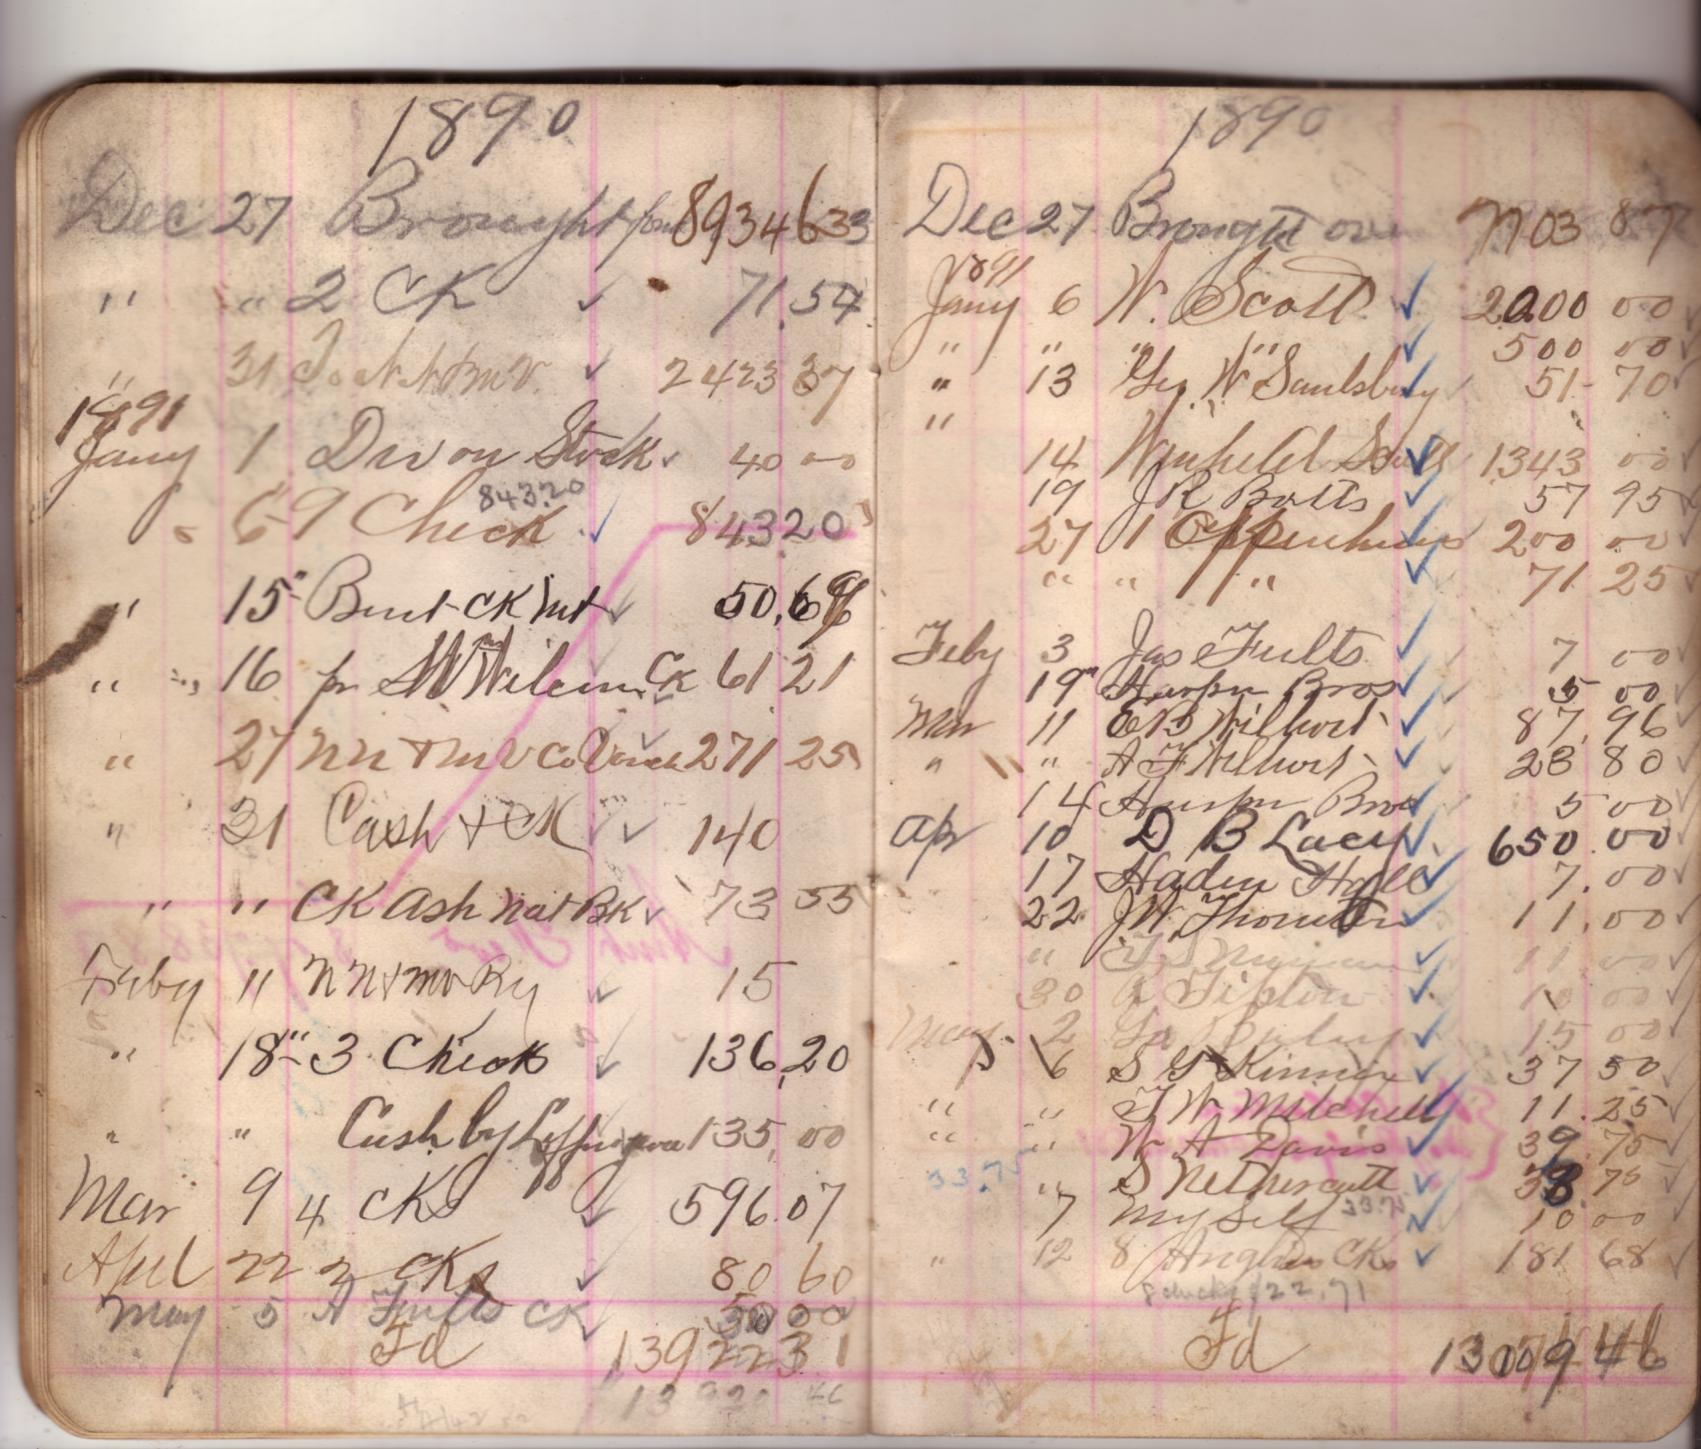 1890
Dec 27 Brought for 8934633
" " 2 CK 71.54
" 31 2423 37
1891
Jany 1 Div on Stock 40 00
84320
" 6 9 Check 84320
" 15" CK 50.69
" " 16 pr CK 61 21
" 27 NN & MV Co 271 25
" 31 Cash & CK 140
" " CK Ash Nat BK 73 55
Feby 11 NN & MV Ry 15
" 18" 3 Checks 136,20
" " Cash by 135,00
Mar 9 4 CKs 596.07
Apul 22 2 CKs 80 60
May 5 A Fults CK 50 00
Fd 1392231
13920
1890
Dec 27 Brought over 7703 87
1891
Jany 6 W. Scott 2000 00
" " " " 500 00
" 13 Geo W Saulsbury 51 70
"
14 Winfield Scott 1343 00
19 J R Botts 57 95
27 200 00
" " " 71 25
Feby 3 Jas Fults 7 00
19" Harper Bros 5 00
Mar 11 E B Wilhoit 87.96
" " A F Wilhoit 28 80
14 Harper Bros 5 00
Apr 10 D B Lacy 650.00
17 Haden Hall 7.00
22 J W Thornton 11.00
" 11 00
30 Tipton 10 00
May 2 15 00
6 S G Kinner 37 50
" " T W Mitchell 11.25
" " W A Davis 39.75
33.75 " S Nethercutt 38 75
7 My Self 33.75 10 00
" 12 8 CKs 181 68
8 checks 122,71
Fd 46